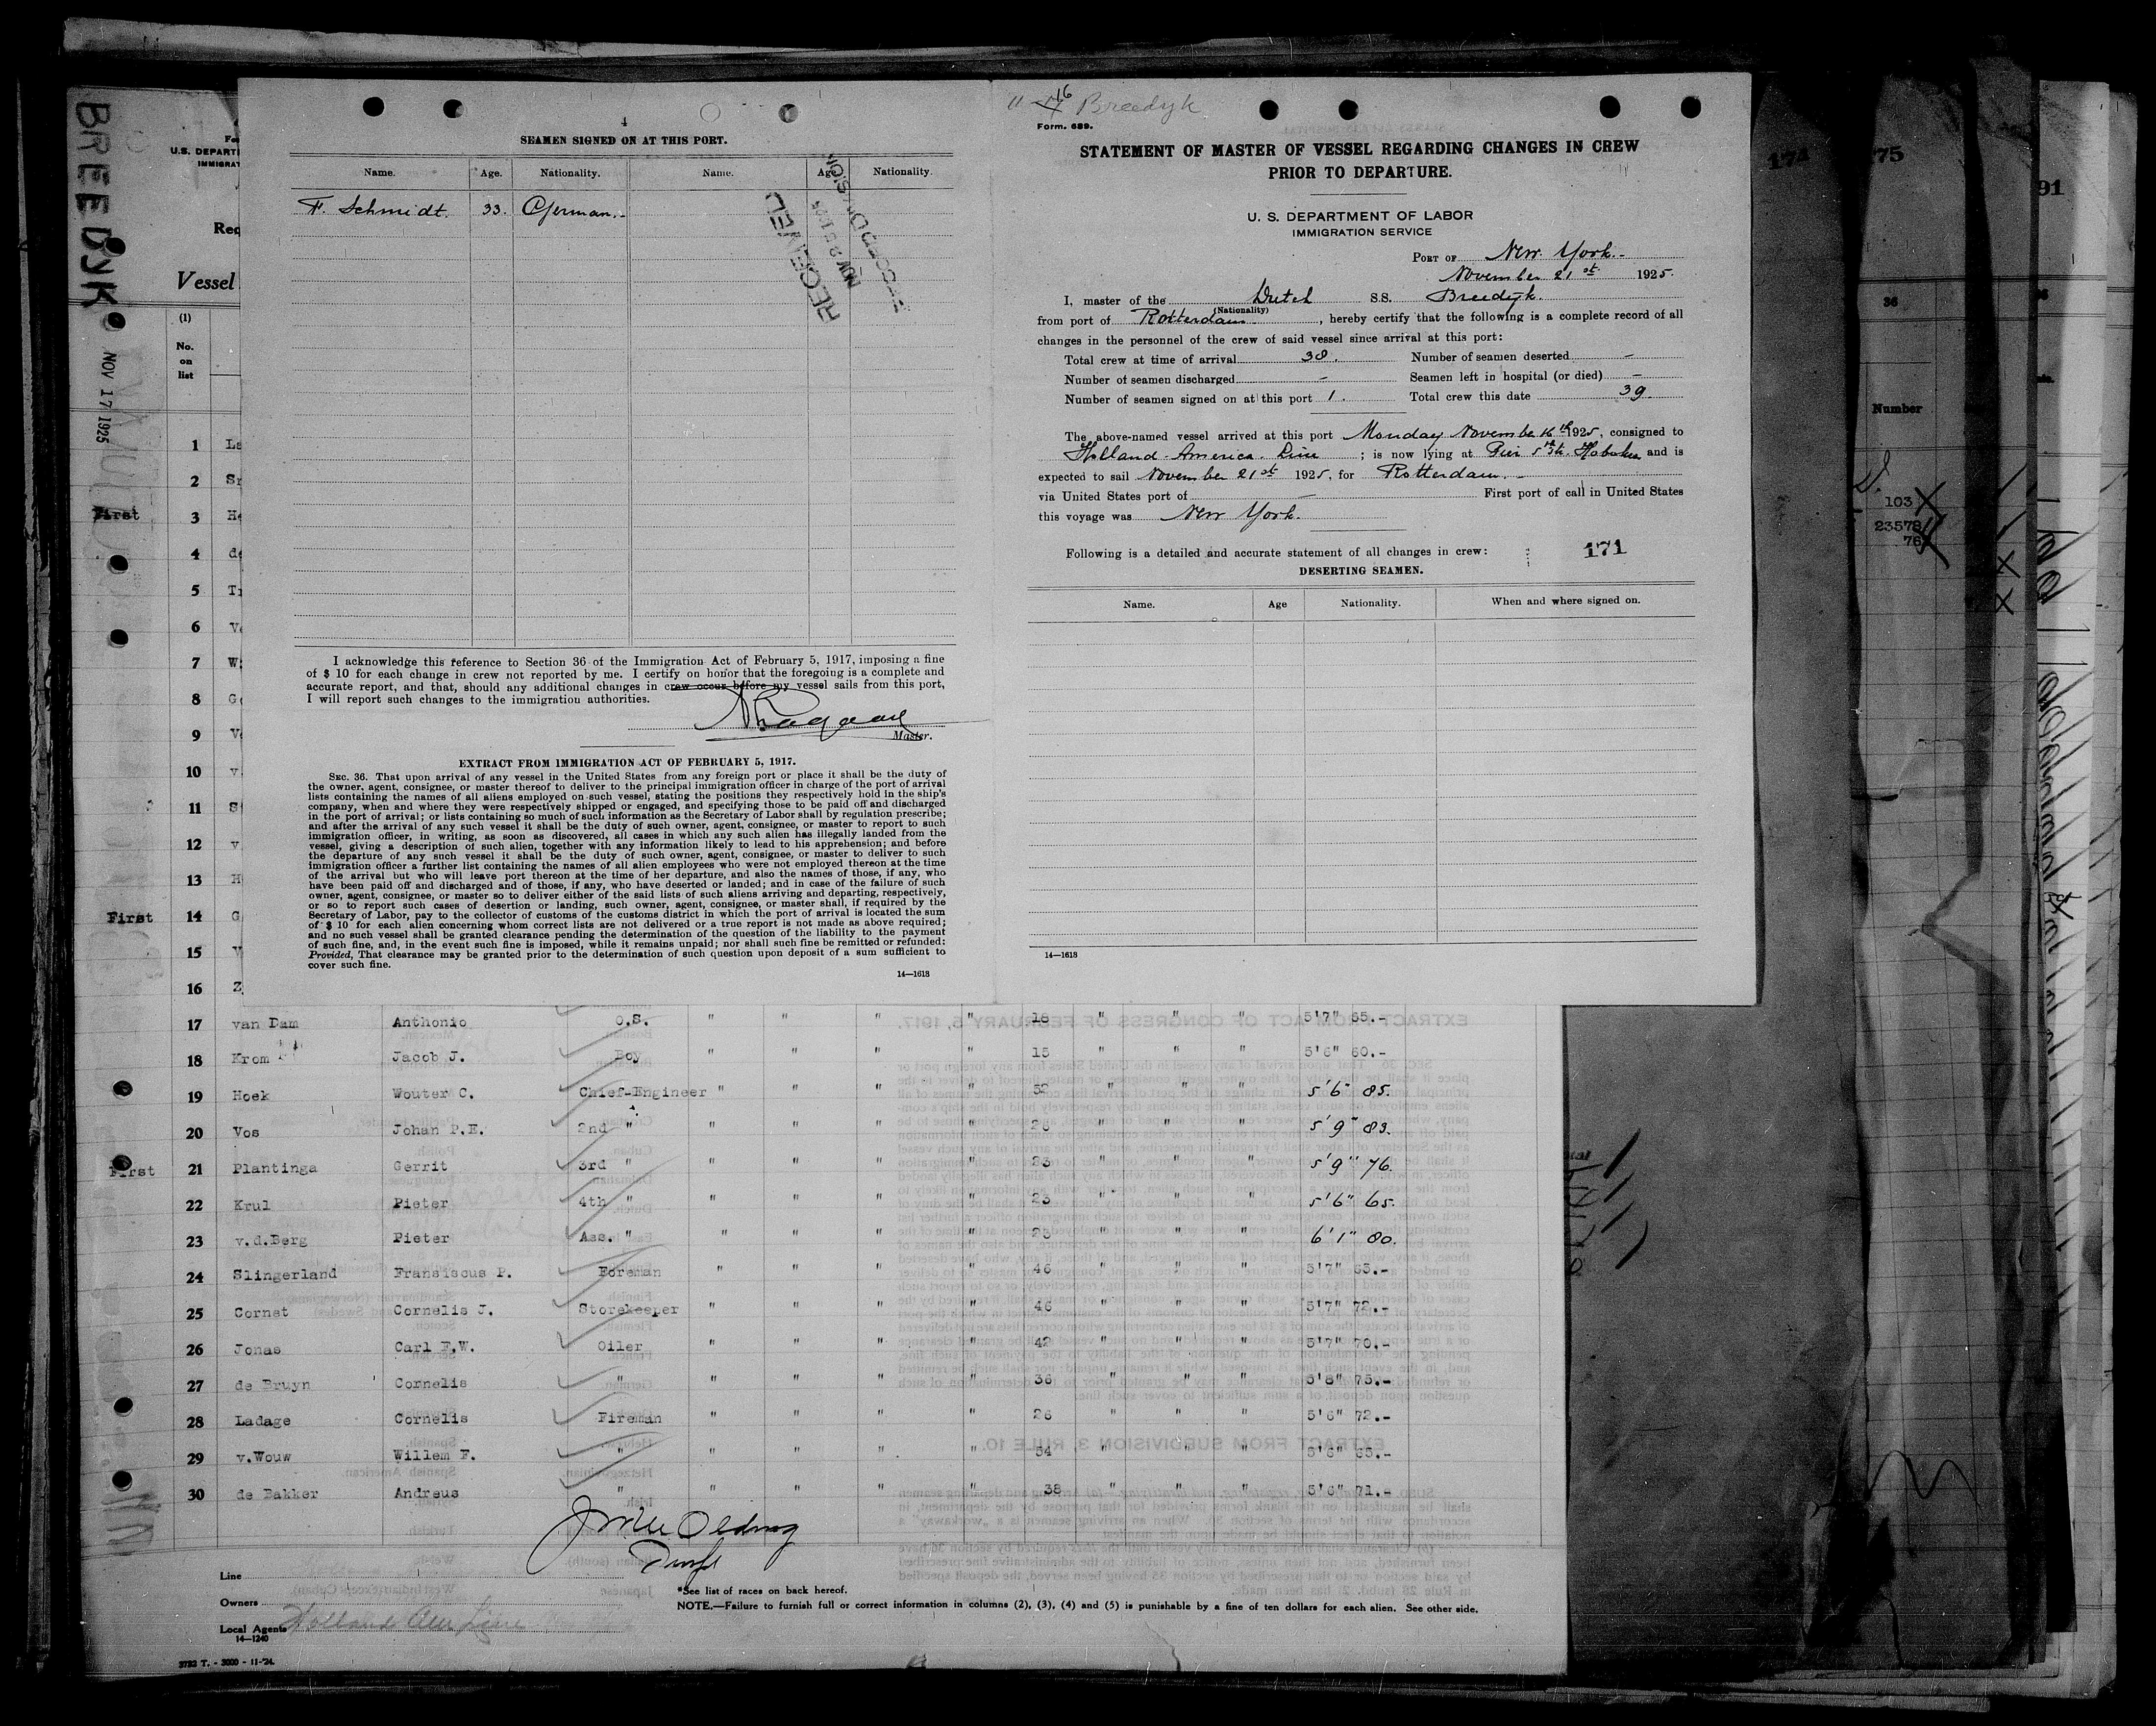 BREEDYK
NOV 17 1925
U.S. DEPART
IMMIGRAT
Vessel
(1)
No.
on
list
1
2
First 3
4
5
6
7
8
9
10
11
12
13
First 14
15
16
SEAMEN SIGNED ON AT THIS PORT.
Name. Age. Nationality. Name. Age Nationality.
F. Schmidt. 33. German.-
RECEIVED
I acknowledge this reference to Section 36 of the Immigration Act of February 5, 1917, imposing a fine
of $ 10 for each change in crew not reported by me. I certify on honor that the foregoing is a complete and
accurate report, and that, should any additional changes in crew occur before my vessel sails from this port,
I will report such changes to the immigration authorities.
Master.
EXTRACT FROM IMMIGRATION ACT OF FEBRUARY 5, 1917.
SEC. 36. That upon arrival of any vessel in the United States from any foreign port or place it shall be the duty of
the owner, agent, consignee, or master thereof to deliver to the principal immigration officer in charge of the port of arrival
lists containing the names of all aliens employed on such vessel, stating the positions they respectively hold in the ship's
company, when and where they were respectively shipped or engaged, and specifying those to be paid off and discharged
in the port of arrival; or lists containing so much of such information as the Secretary of Labor shall by regulation prescribe;
and after the arrival of any such vessel it shall be the duty of such owner, agent, consignee, or master to report to such
immigration officer, in writing, as soon as discovered, all cases in which any such alien has illegally landed from the
vessel, giving a description of such alien, together with any information likely to lead to his apprehension; and before
the departure of any such vessel it shall be the duty of such owner, agent, consignee, or master to deliver to such
immigration officer a further list containing the names of all alien employees who were not employed thereon at the time
of the arrival but who will leave port thereon at the time of her departure, and also the names of those, if any, who
have been paid off and discharged and of those, if any, who have deserted or landed; and in case of the failure of such
owner, agent, consignee, or master so to deliver either of the said lists of such aliens arriving and departing, respectively,
or so to report such cases of desertion or landing, such owner, agent, consignee, or master shall, if required by the
Secretary of Labor, pay to the collector of customs of the customs district in which the port of arrival is located the sum
of $ 10 for each alien concerning whom correct lists are not delivered or a true report is not made as above required;
and no such vessel shall be granted clearance pending the determination of the question of the liability to the payment
of such fine, and, in the event such fine is imposed, while it remains unpaid; nor shall such fine be remitted or refunded:
Provided, That clearance may be granted prior to the determination of such question upon deposit of a sum sufficient to
cover such fine.
14—1618
Breedyk
Form. 689.
STATEMENT OF MASTER OF VESSEL REGARDING CHANGES IN CREW
PRIOR TO DEPARTURE.
U. S. DEPARTMENT OF LABOR
IMMIGRATION SERVICE
PORT OF New York.-
November 21st 1925.
I, master of the Dutch S.S. Breedyk.
(Nationality)
from port of Rotterdam , hereby certify that the following is a complete record of all
changes in the personnel of the crew of said vessel since arrival at this port:
Total crew at time of arrival 38. Number of seamen deserted -
Number of seamen discharged - Seamen left in hospital (or died) -
Number of seamen signed on at this port 1. Total crew this date 39.
The above-named vessel arrived at this port Monday November 16th 1925, consigned to
Holland-America Line ; is now lying at Pier 5th Str. Hoboken and is
expected to sail November 21st 1925, for Rotterdam.-
via United States port of - First port of call in United States
this voyage was New York.
Following is a detailed and accurate statement of all changes in crew: 171
DESERTING SEAMEN.
Name. Age Nationality. When and where signed on.
14—1618
171 75 91
36
Number
103
23578
76
17 van Dam Anthonio O.S. " " " " 18 " " " 5'7" 65.-
18 Krom Jacob J. Boy " " " " 15 " " " 5'6" 60.-
19 Hoek Wouter C. Chief-Engineer " " " " 52 " " " 5'6" 85.
20 Vos Johan P.E. 2nd " " " " " 28 " " " 5'9" 83.
21 Plantinga Gerrit 3rd " " " " " 23 " " " 5'9" 76.
First
22 Krul Pieter 4th " " " " " 23 " " " 5'6" 65.
23 v.d.Berg Pieter Ass. " " " " " 23 " " " 6'1" 80.
24 Slingerland Fransiscus P. Foreman " " " " 46 " " " 5'7" 63.-
25 Cornet Cornelis J. Storekeeper " " " " 46 " " " 5'7" 72.-
26 Jonas Carl F.W. Oiler " " " " 42 " " " 5'7" 70.-
27 de Bruyn Cornelis " " " " " 36 " " " 5'8" 75.-
28 Ladage Cornelis Fireman " " " " 26 " " " 5'6" 72.-
29 v.Wouw Willem F. " " " " " 34 " " " 5'6" 65.-
30 de Bakker Andreus " " " " " 38 " " " 5'6" 71.-
Line
Owners
Local Agents Holland Am Line
14—1240
*See list of races on back hereof.
NOTE.—Failure to furnish full or correct information in columns (2), (3), (4) and (5) is punishable by a fine of ten dollars for each alien. See other side.
3732 T. - 3000 - 11-'24.